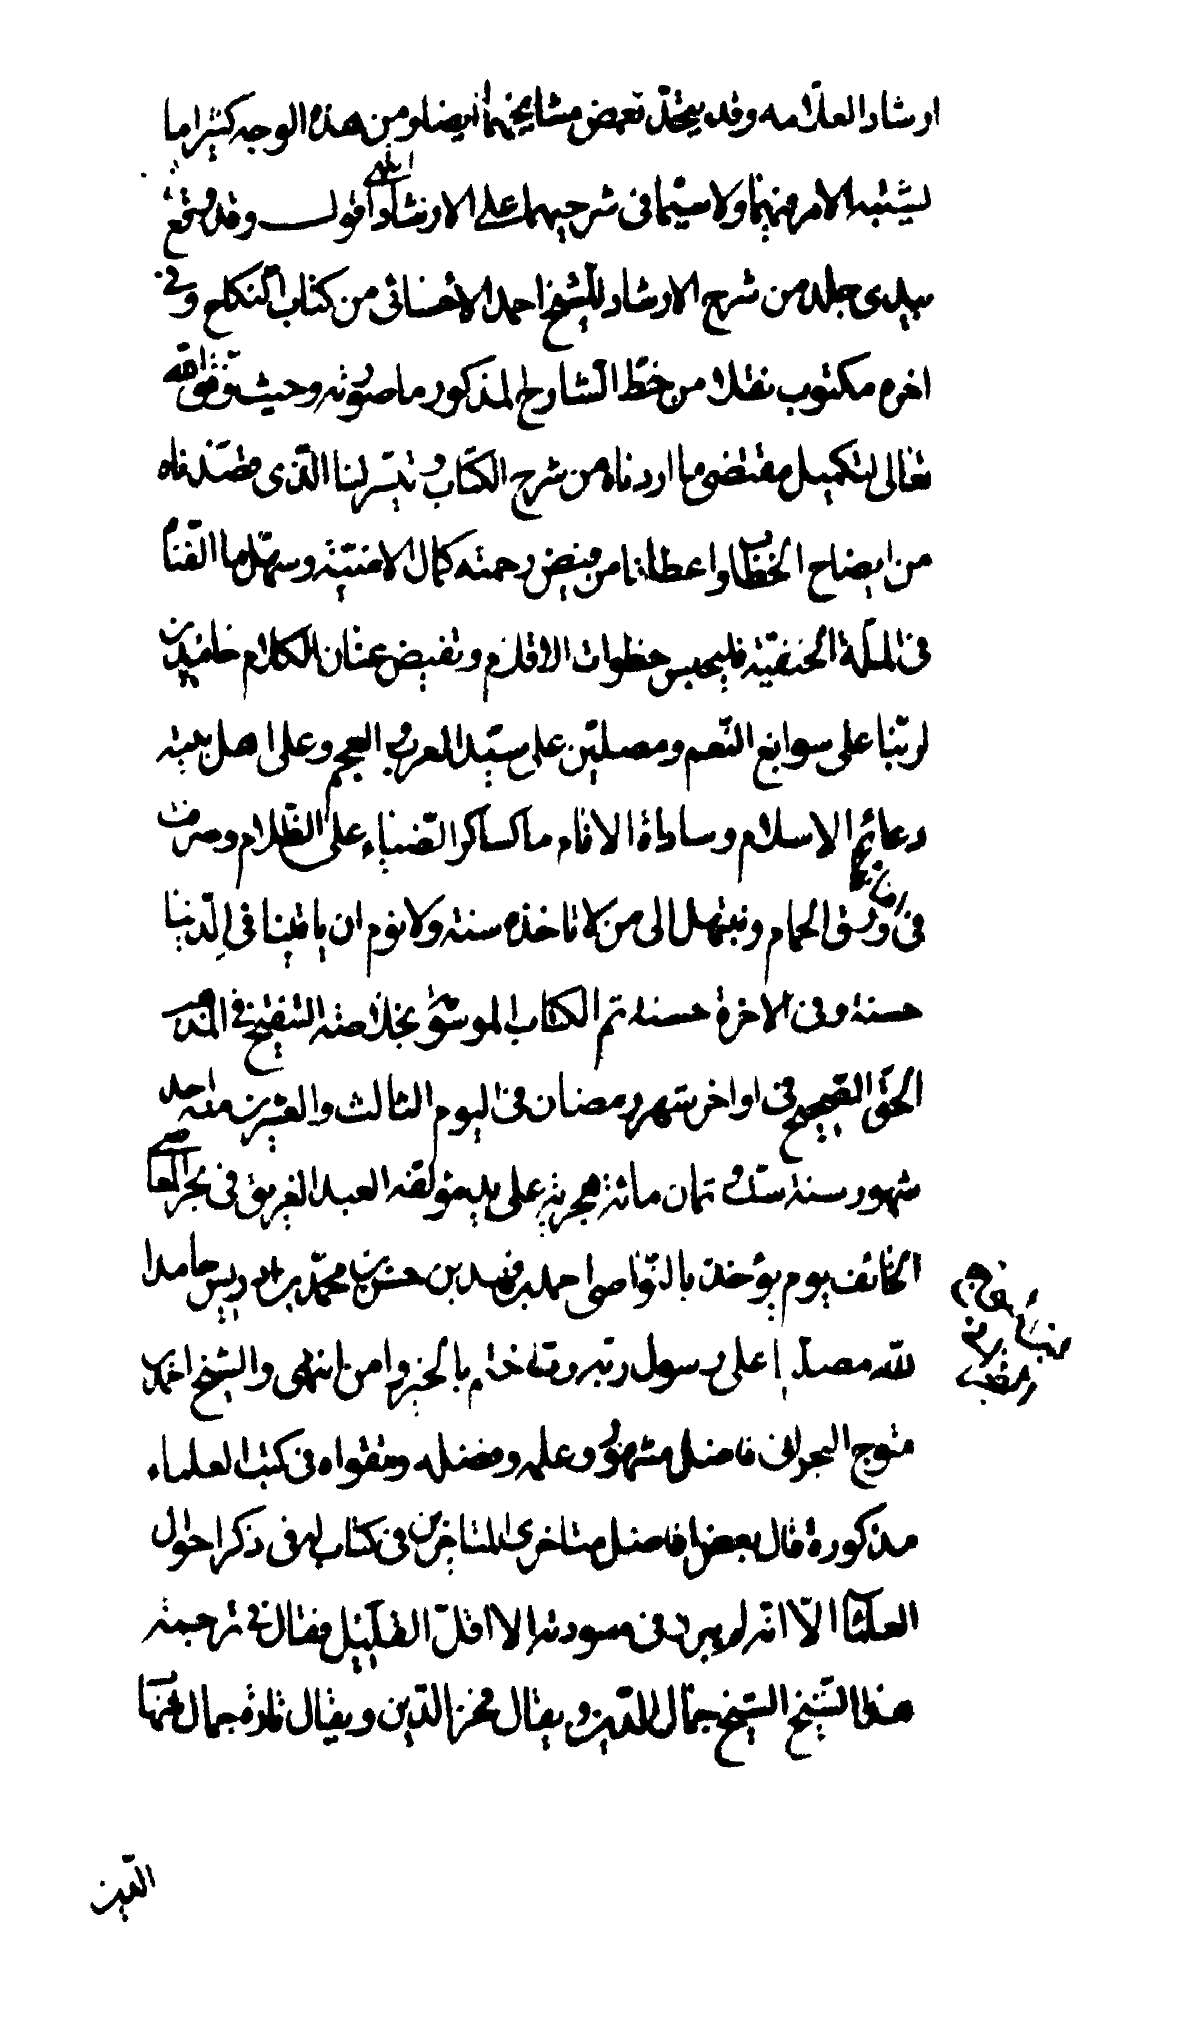 ارشاد العلامه وقد يتحد بعض مشايخهما ايضا ومن هذه الوجه كثيرا ما
يشتبه الامر فيهما ولا سيما في شرحيهما على الارشاد انتهى اقول وقد وقع
بيدى جلد من شرح الارشاد للشيخ احمد الاحسائى من كتاب النكاح وفى
اخره مكتوب نقلا من خط الشارح المذكور ما صورته وحيث وفق الله
تعالى لتكميل مقتضى ما اردناه من شرح الكتاب وتيسر لنا الذى قصدناه
من ايضاح الخطاب واعطانا من فيض رحمته كمال الامنية وسهل ما الفناه
فى الملة الحنفية فليحبس خطوات الاقلام ونقبض عنان الكلام حامدين
لربنا على سوابغ النعم ومصلين على سيد العرب والعجم وعلى اهل بيته
دعائم الاسلام وساداة الانام ما كساكر الضياء على الظلام وصرفت
فى ورق الحمام ونبتهل الى من لا تاخذه سنة ولا نوم ان ياتينا فى الدنيا
حسنة وفى الاخرة حسنة تم الكتاب الموسوم بخلاصة التنقيح فى المذهب
الحق الصحيح فى اواخر شهر رمضان فى اليوم الثالث والعشرين منه احد
شهور سنة ست وثمان مائة هجرية على يد مؤلفه العبد الغريق فى بحر المعاصى
الخائف يوم يؤخذ بالنواصى احمد بن فهد بن حسن بن محمد بن ادريس حامدا
لله مصليا على رسول ربه وتما ختام بالخير وامن انتهى والشيخ احمد بن
متوج البحرانى فاضل مشهور وعلمه وفضله وتقواه فى كتب العلماء
مذكورة قال بعض افاضل متاخرى المتاخرين فى كتاب له فى ذكر احوال
العلماء الا انه لم يبرد فى مسودته الا اقل القليل فقال فى ترجمته
هذا الشيخ الشيخ جمال الدين ويقال فخر الدين ويقال تارة جمال
الدين